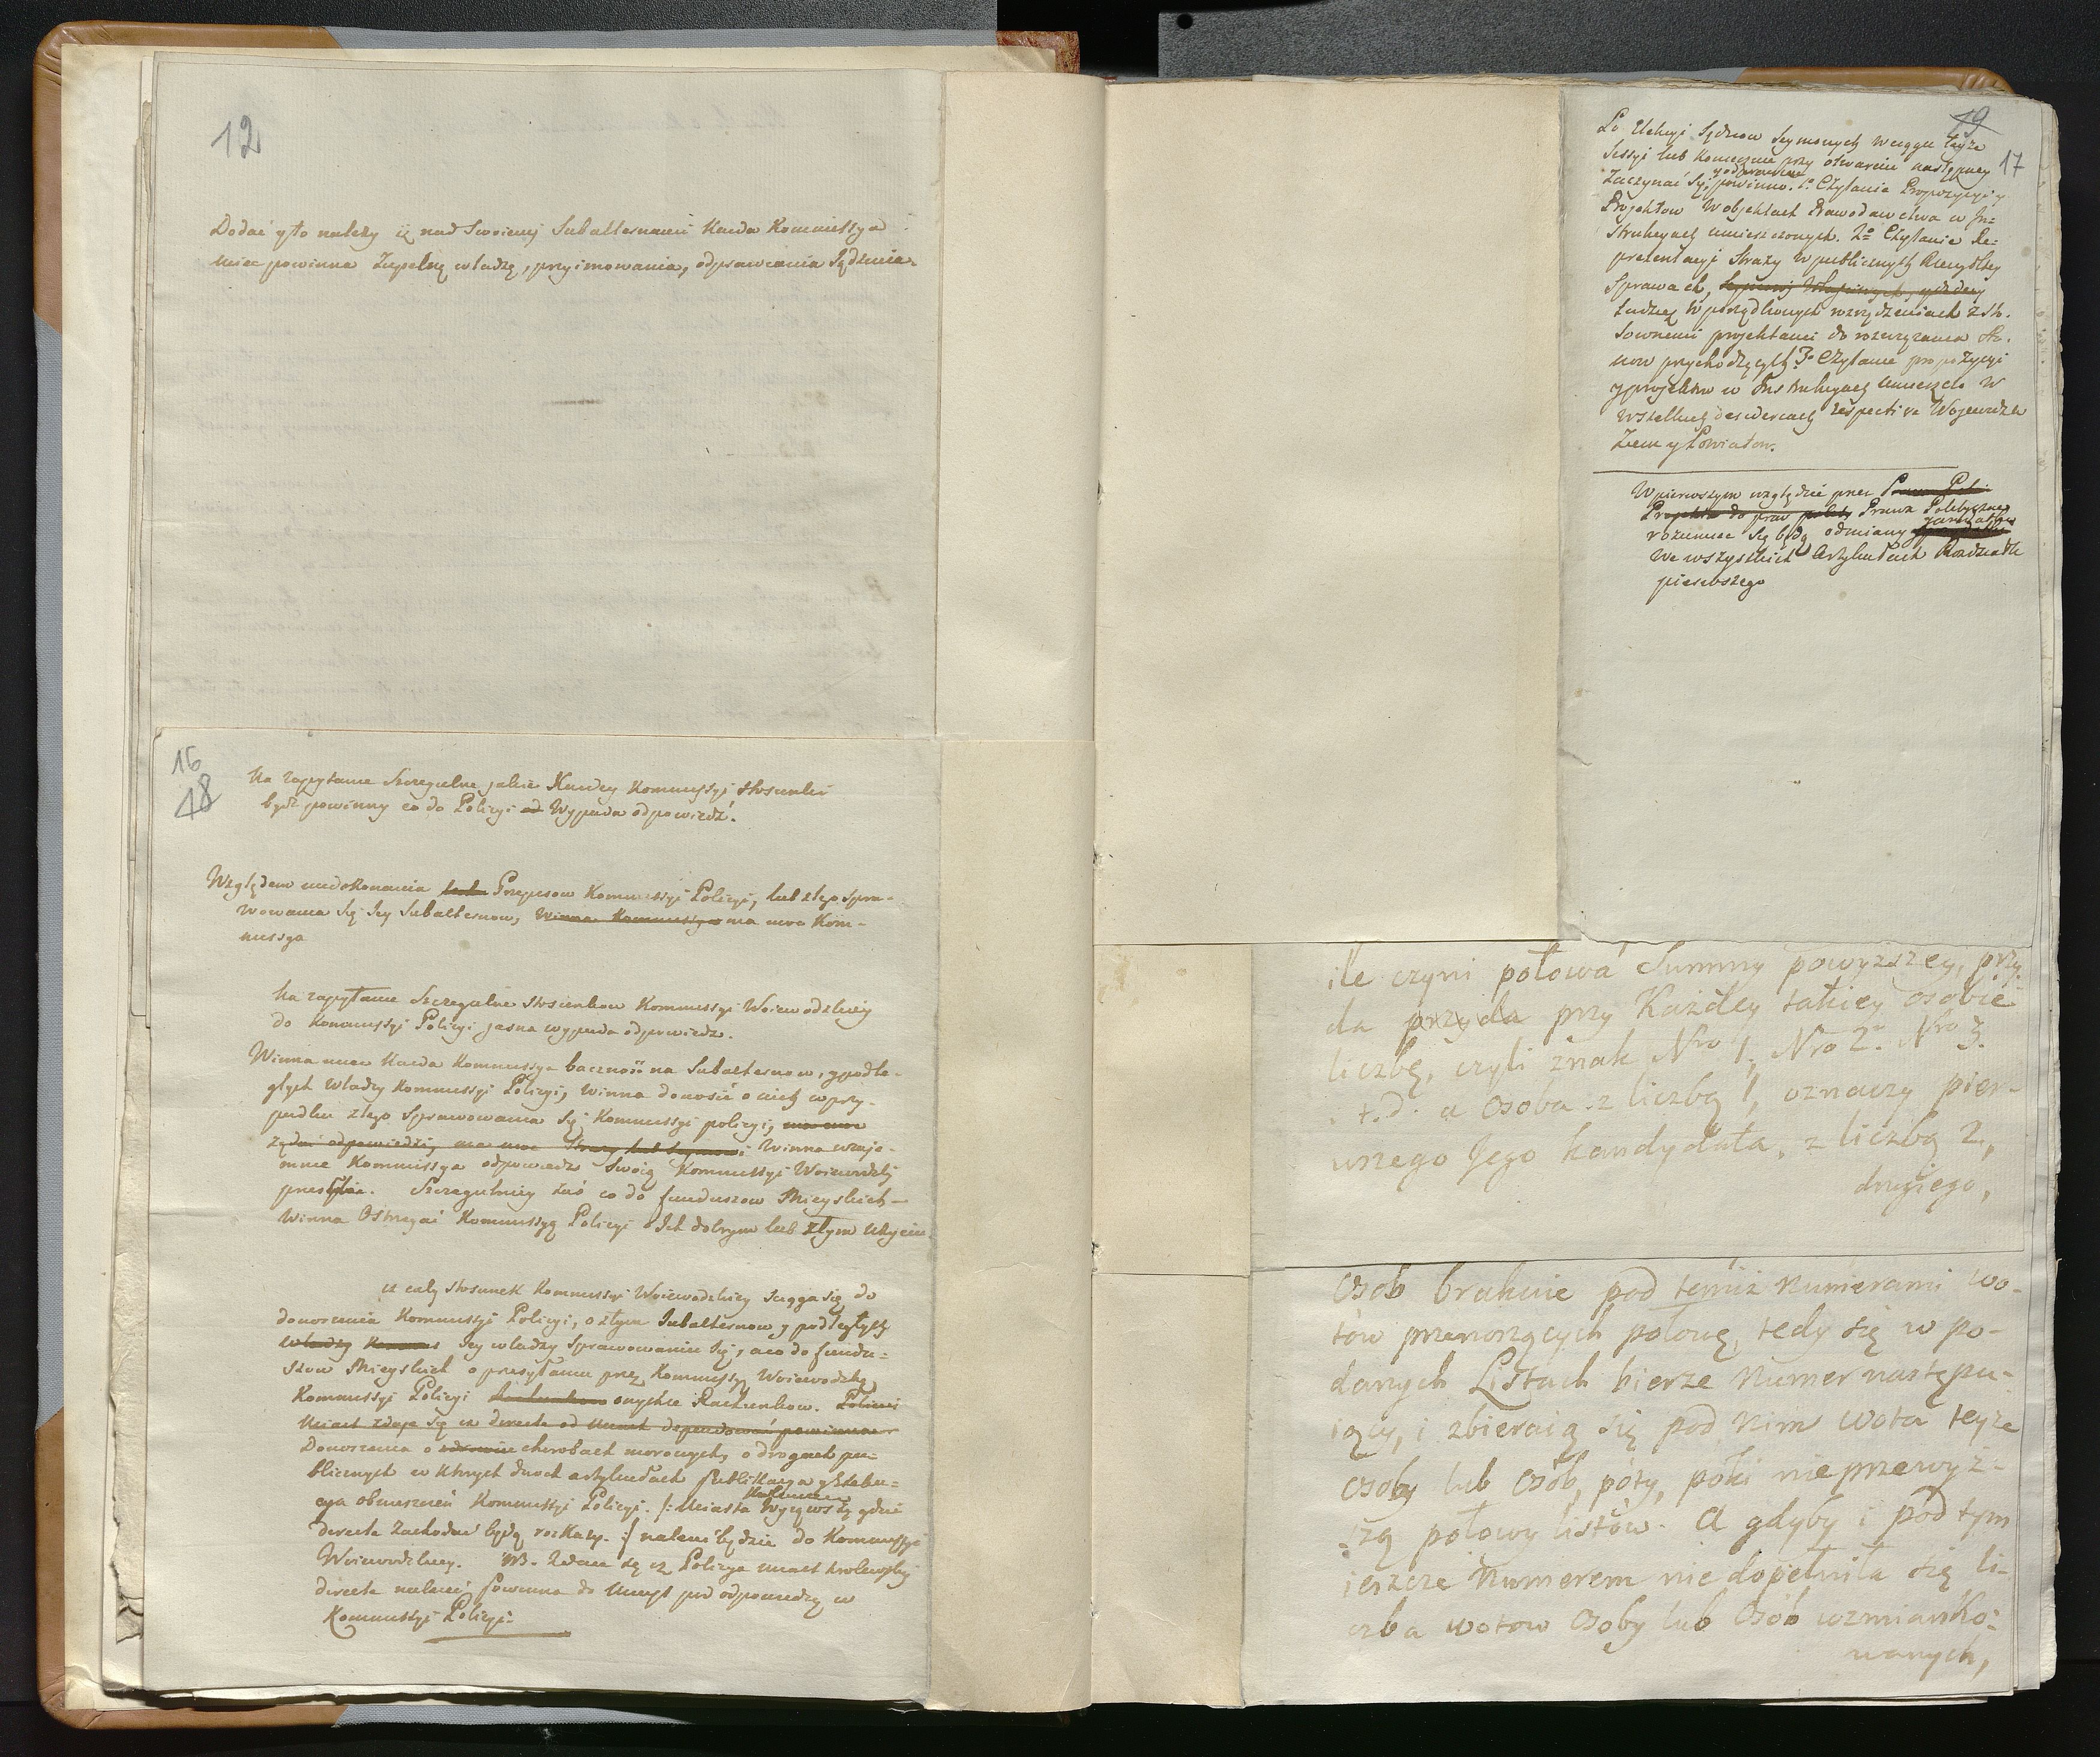 12
Dodać y to należy iż nad Swoiemi Subalternami Kazda Kommissya
miec powinna Zupełną władzę, przyimowania, odprawiania Sądzenia.
16
18
Na zapytanie Szczegulne jakie Kazdey Kommissyi stosunki
bydź powinny co do Policyi od Wypada odpowiedź.
Względem niedokonania Przepisow Kommissyi Policyi, lub złego Spra-
wowania Się Jey Subalternow, Winna Kommissya ma moc Kom-
missya
Na zapytanie Szczegulne stosunkow Kommissyi Woiewodzkiey
do Kommissyi Policyi jasna wypada odpowiedz.
Winna miec Kazda Kommissya baczność na Subalternow, y podle-
głych władzy Kommissyi Policyi, winna donosić o nich w przy-
padku złego Sprawowania Się Kommissyi policyi,
żądać odpowiedzi, ma moc Straży lub Seymowi Winna wzaje-
mnie Kommissya odpowiedz Swoią Kommissyi Woiewodzkiey
przesłać. Szczegulniey zaś co do funduszow Mieyskich
Winna Ostrzegać Kommissyą Policyi o Ich dobrym lub złym użyciu
iz cały stosunek Kommissyi Woiewodzkiey sciąga się do
donoszenia Kommissyi Policyi, o złym Subalternow y podległych
władzy Jey władzy Sprawowaniu Się, a co do fundu-
szow Mieyskich o przesyłaniu przez Kommissyą Woiewodzką
Kommissyi Policyi onychze Rachunkow. Policyi
Miast zdaje się iż directe od Miast dependować powinna
Donoszenia o zdrowiu chorobach morowych, o drogach pu-
blicznych w ktorych dwoch artykułach publikacya y
cya obwieszczeń Kommissyi Policyi. /: Miasta Wyiąwszy gdzie
directe Zachodzić będą rozkazy. :/ należeć będzie do Kommissyi
Woiewodzkiey. NB. Zdaie się iż Policya miast krolewskich
directe należeć powinna do Miast pod odpowiedzą w
Kommissyi Policyi.
19
17
Po Elekcyi Sędziow Seymowych w ciągu teyze
Sessyi lub koniecznie przy otwarciu następney
Zaczynać się powinno. 1o Czytanie Propozycyi y
Projektow w objektach Prawodawctwa w In-
strukcyach umieszczonych. 2o Czytanie Re-
prezentacyi Straży w publicznych Rzeczpltey
Sprawach,
tudzież w porządkowych rozrządzeniach z sto-
sownemi projektami do rozwiązania Sta-
now przychodzących 3o Czytanie propozycyi
y projektow w Instrukcyach umieszczo w
wszelkich desideriach respective Wojewodztw
Ziem y Powiatow.
W pierwszym względzie przez Prawa Poli
Projekta do praw polity Prawa Polityczne
rozumiec się będą odmiany
We wszystkich Artykułach Rozdziału
pierwszego
ile czyni połowa Summy powyższey, przy
da przyda przy Każdey takiey osobie
liczbę, czyli znak Nro 1. Nro 2. Nro 3.
t.d. a Osoba z liczbą 1, oznaczy pier-
wszego Jego kandydata, z liczbą 2,
drugiego,
Osob brakuie pod temiż Numerami wo-
tow przenoszących połowę, tedy się w po-
danych Listach bierze Numer nastepu-
iący, i zbieraią się pod nim wota teyże
Osoby lub Osób, póty, póki nie przewyż-
szą połowy listów. A gdyby i pod tym
ieszcze Numerem nie dopełniła się li-
czba wotow Osoby lub Osób wzmianko-
wanych,